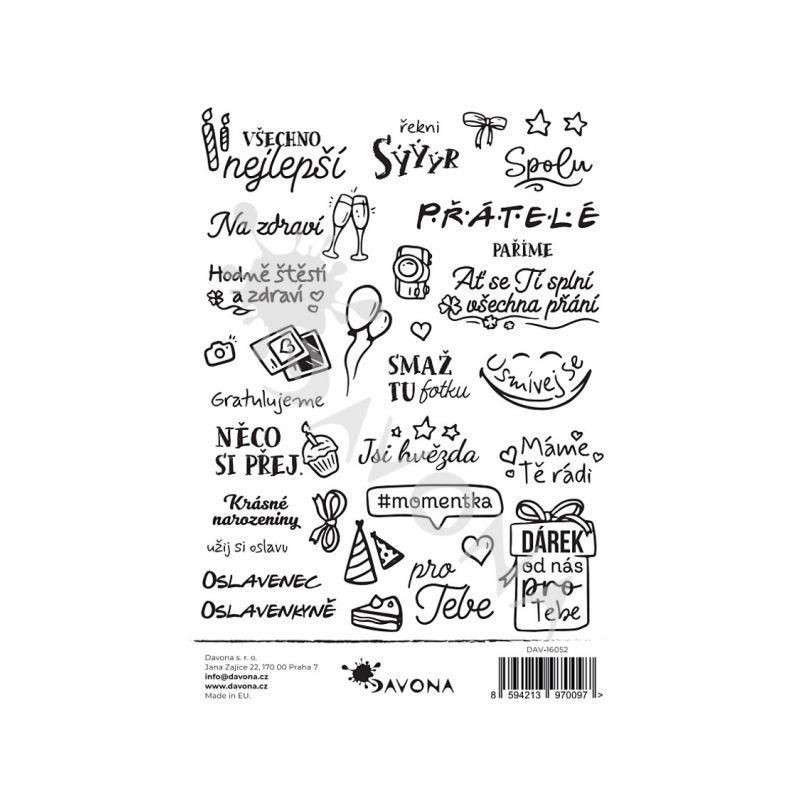 VŠECHNO
nejlepší
řekni
SÝÝÝR
Spolu
Na zdraví
P·Ř·Á·T·E·L·É
PAŘÍME
Hodně štěstí
a zdraví
Ať se Ti splní
všechna přání
SMAŽ
TU fotku
Usmívej se
Gratulujeme
NĚCO
SI PŘEJ.
Jsi hvězda
Máme
Tě rádi
Krásné
narozeniny
#momentka
užij si oslavu
DÁREK
od nás
pro
Tebe
OSLAVENEC
OSLAVENKYNĚ
pro
Tebe
DAVONA
Davona s. r. o.
Jana Zajíce 22, 170 00 Praha 7
info@davona.cz
www.davona.cz
Made in EU.
DAVONA
DAV-16052
8 594213 970097 >